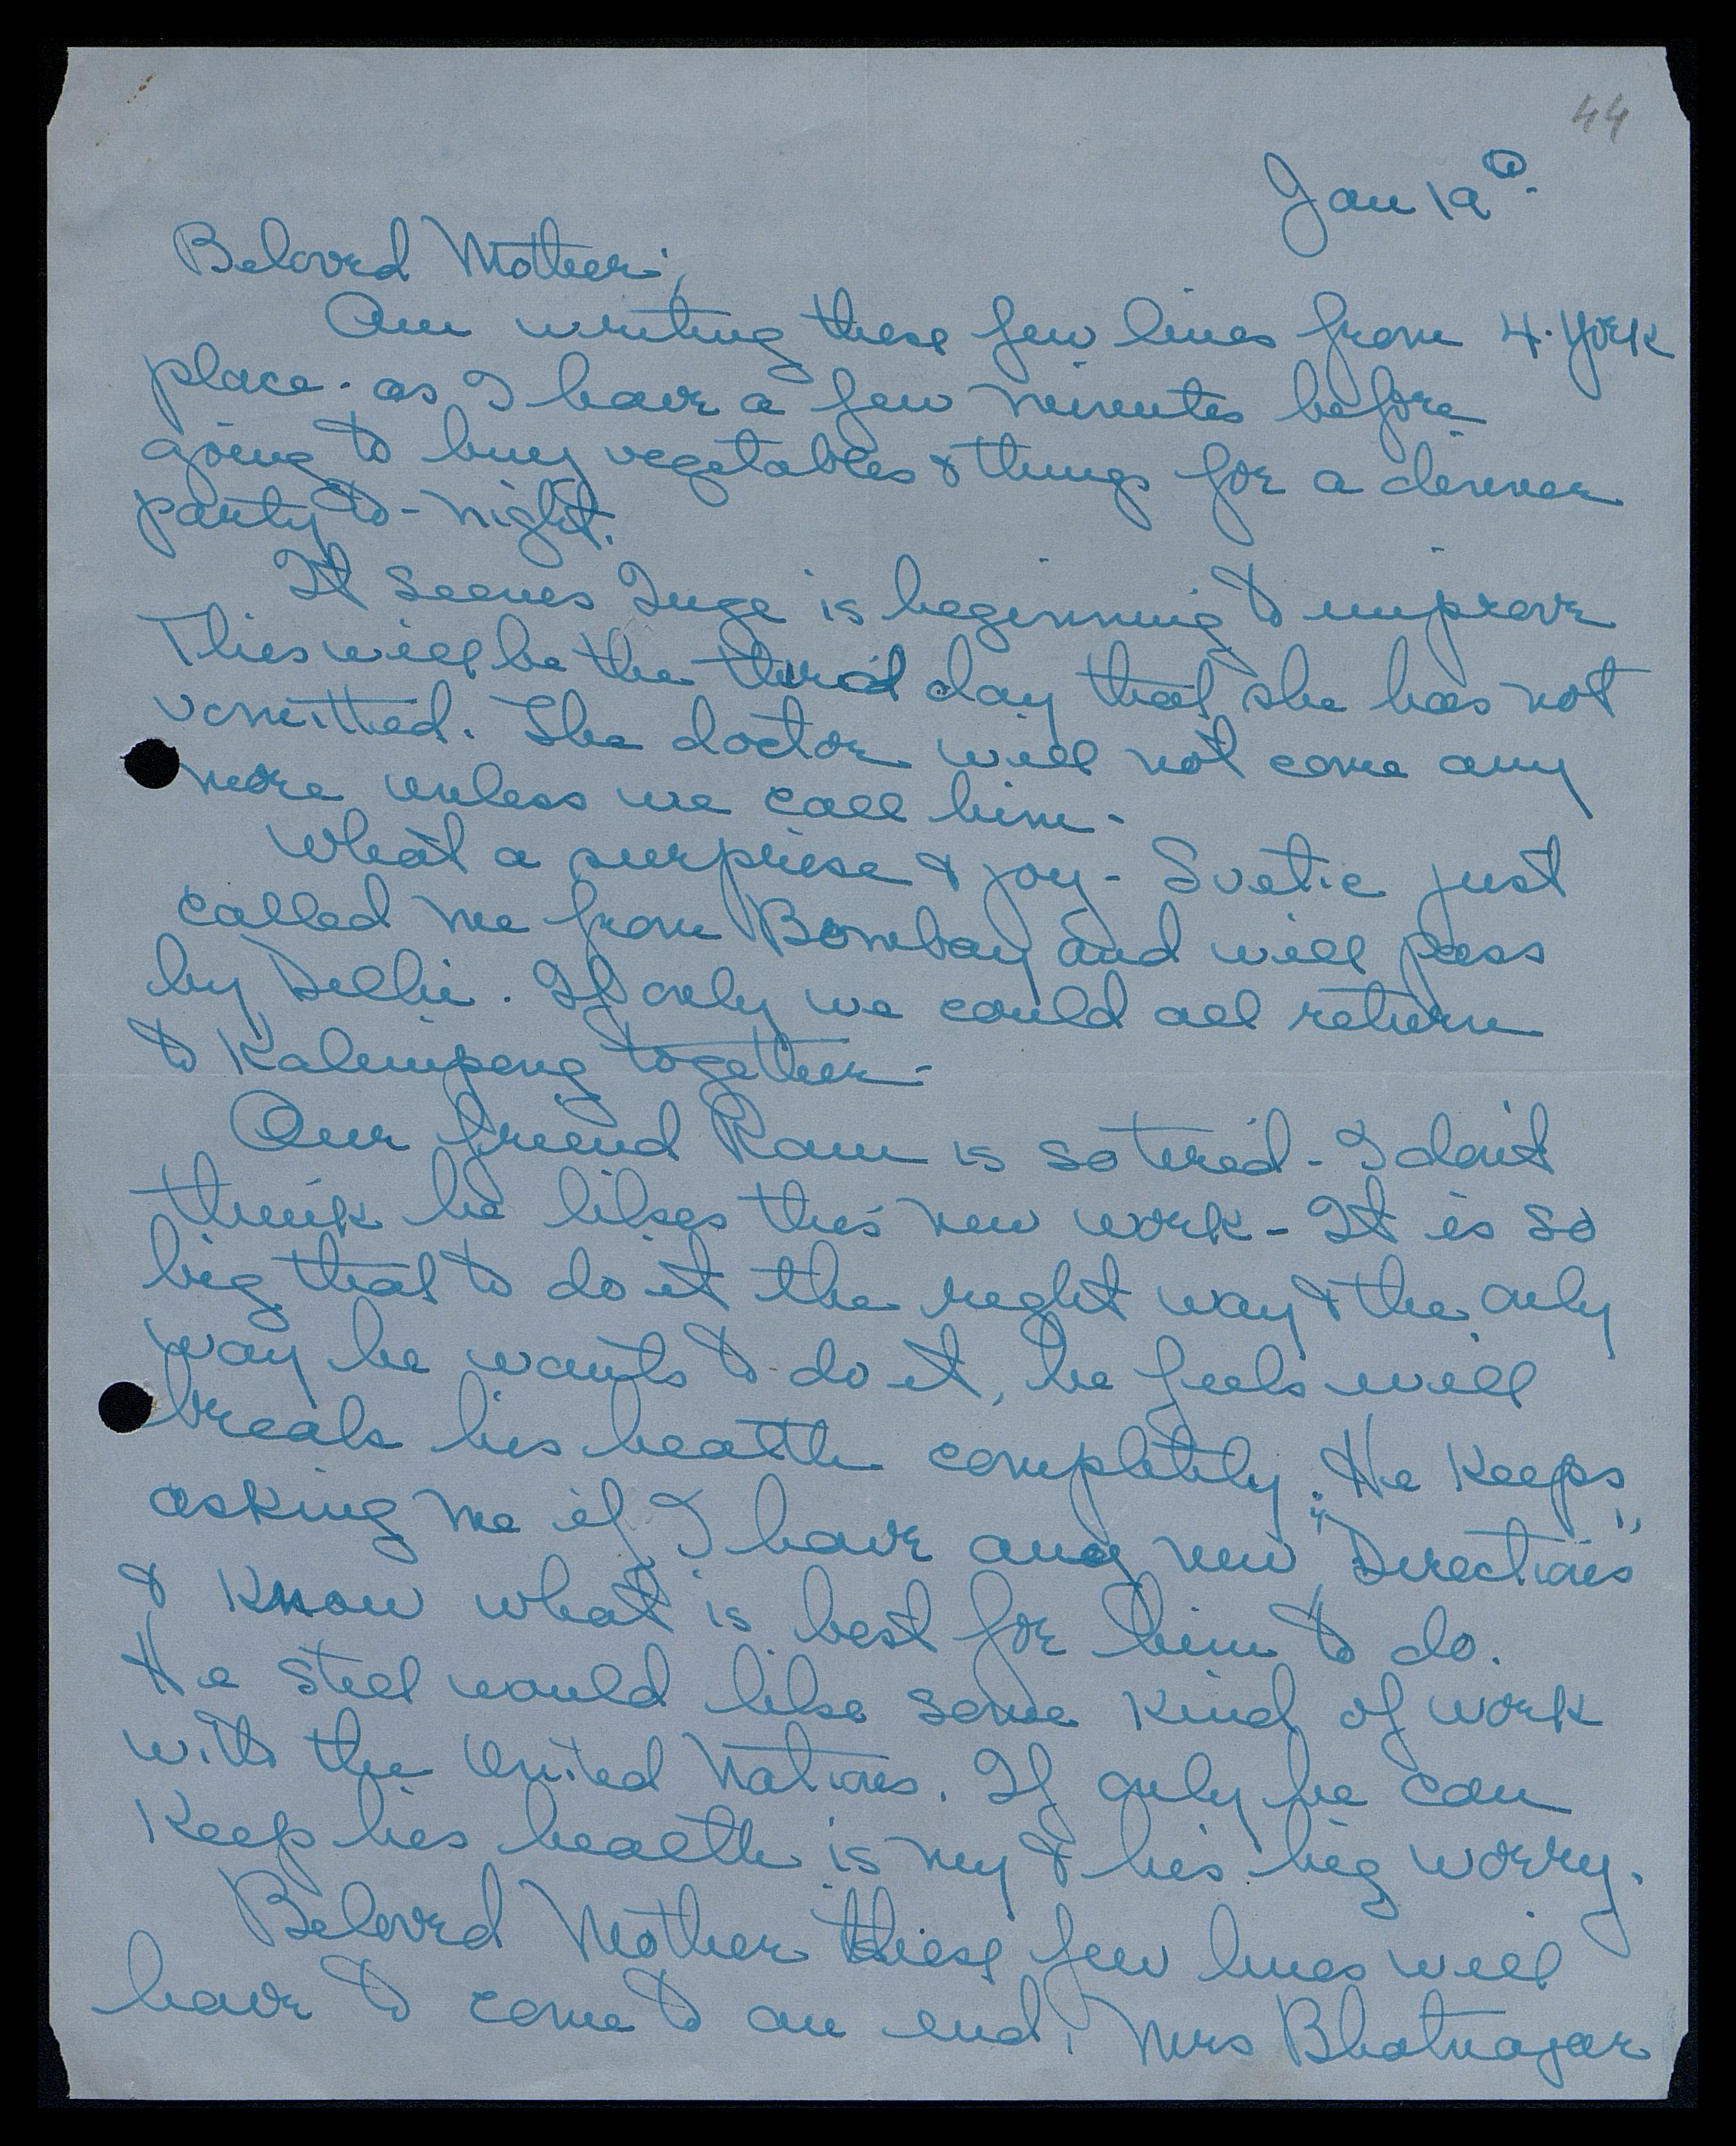 44
Jan 19th.
Beloved Mother;
Am writing these few lines from 4. York
place. as I have a few minutes before
going to buy vegetables & things for a dinner
party to-night.
It seems Inge is beginning to improve
This will be the third day that she has not
vomitted. The doctor will not come any
more unless we call him.
What a surprise & joy - Svetic just
called me from Bombay and will pass
by Delhi. If only we could all return
to Kalimpong together.
Our friend Ram is so tired - I don't
think he likes this new work - It is so
big that to do it the right way & the only
way he wants to do it, he feels will
break his health completely. He keeps
asking me if I have any new "Directions"
& know what is best for him to do.
He still would like some kind of work
with the United Nations. If only he can
keep his health is my & his big worry.
Beloved Mother these few lines will
have to come to an end, Mrs Bhatnagar